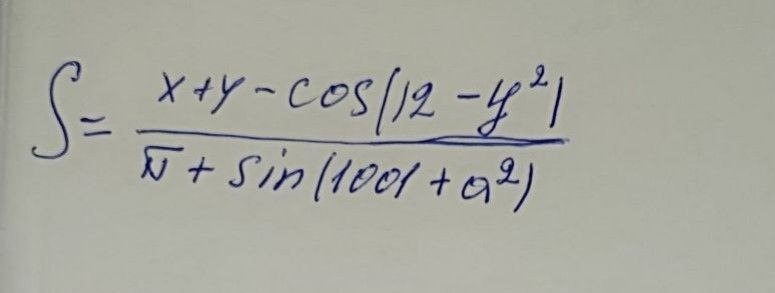 S = (x + y - cos(12 - y²)) / (π + sin(1001 + a²))